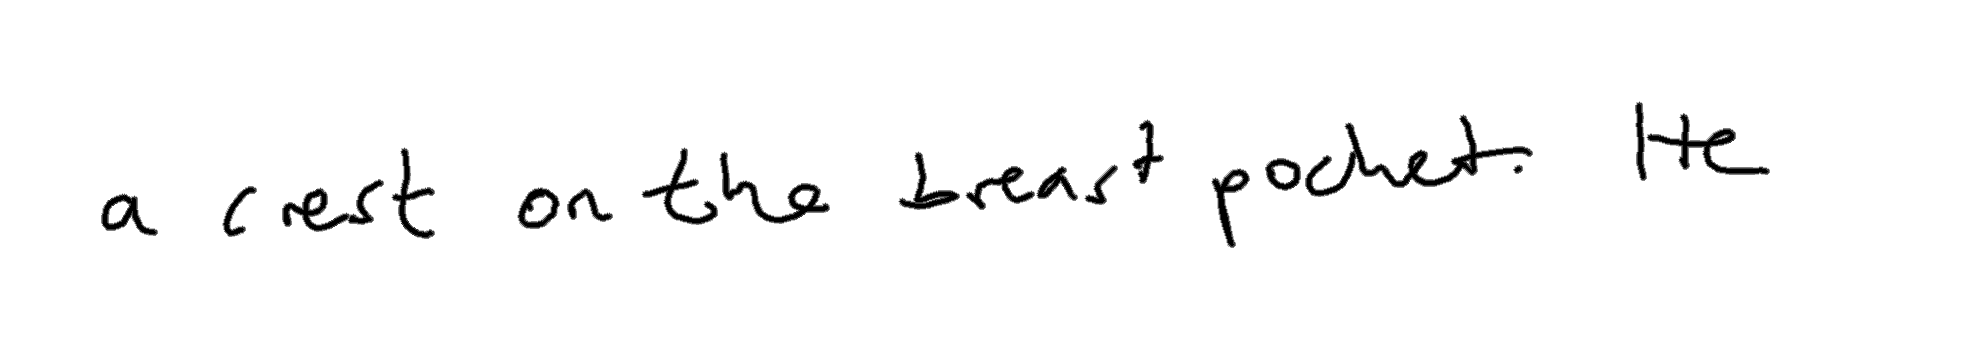 a crest on the breast pocket. He